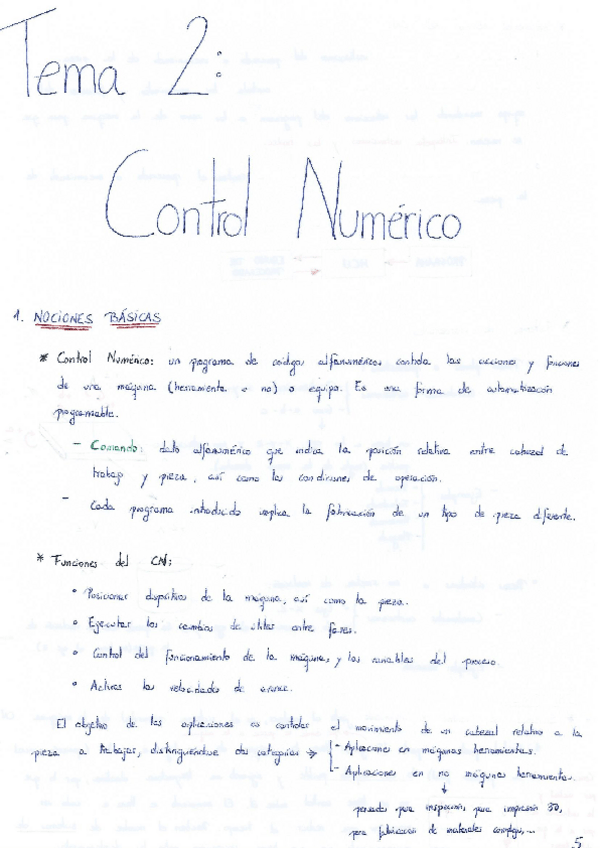 Tema 2:
Control Numérico
1. NOCIONES BÁSICAS
* Control Numérico: un programa de códigos alfanuméricos controla las acciones y funciones
de una máquina (herramienta o no) o equipo. Es una forma de automatización
programable.
- Comando: dato alfanumérico que indica la posición relativa entre cabezal de
trabajo y pieza, así como las condiciones de operación.
- Cada programa introducido implica la fabricación de un tipo de pieza diferente.
* Funciones del CN:
• Posicionar dispositivos de la máquina, así como la pieza.
• Ejecutar los cambios de útiles entre fases.
• Control del funcionamiento de la máquina, y las variables del proceso.
• Activar las velocidades de avance.
El objetivo de las aplicaciones es controlar el movimiento de un cabezal relativo a la
pieza a trabajar, distinguiéndose dos categorías →
- Aplicaciones en máquinas herramientas.
- Aplicaciones en no máquinas herramientas.
↓
pensadas para inspección, para impresión 3D,
para fabricación de materiales complejos,...
5